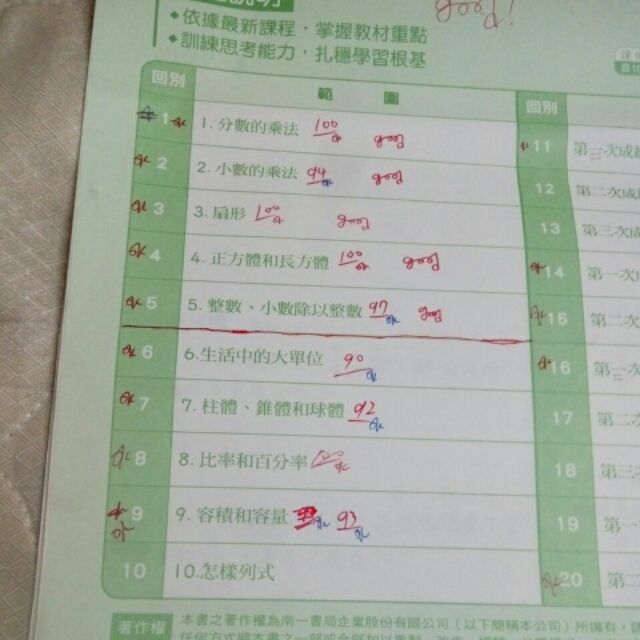 good!
依據最新課程，掌握教材重點
訓練思考能力，扎穩學習根基
回別 範圍 回別
1 ok 1. 分數的乘法 100 ok good
ok 2 2. 小數的乘法 94 ok good
ok 3 3. 扇形 100 ok good
ok 4 4. 正方體和長方體 100 ok good
ok 5 5. 整數、小數除以整數 97 ok good
ok 6 6.生活中的大單位 90 ok
ok 7 7. 柱體、錐體和球體 92 ok
ok 8 8. 比率和百分率 100 ok
ok 9 9. 容積和容量 ok 93 ok
10 10.怎樣列式
11 第一次成
12 第二次成
13 第三次成
ok 14 第一次
ok 15 第二次
ok 16 第一
17 第二
18 第三
19 第一
ok 20 第二
著作權 本書之著作權為南一書局企業股份有限公司（以下簡稱本公司）所擁有，